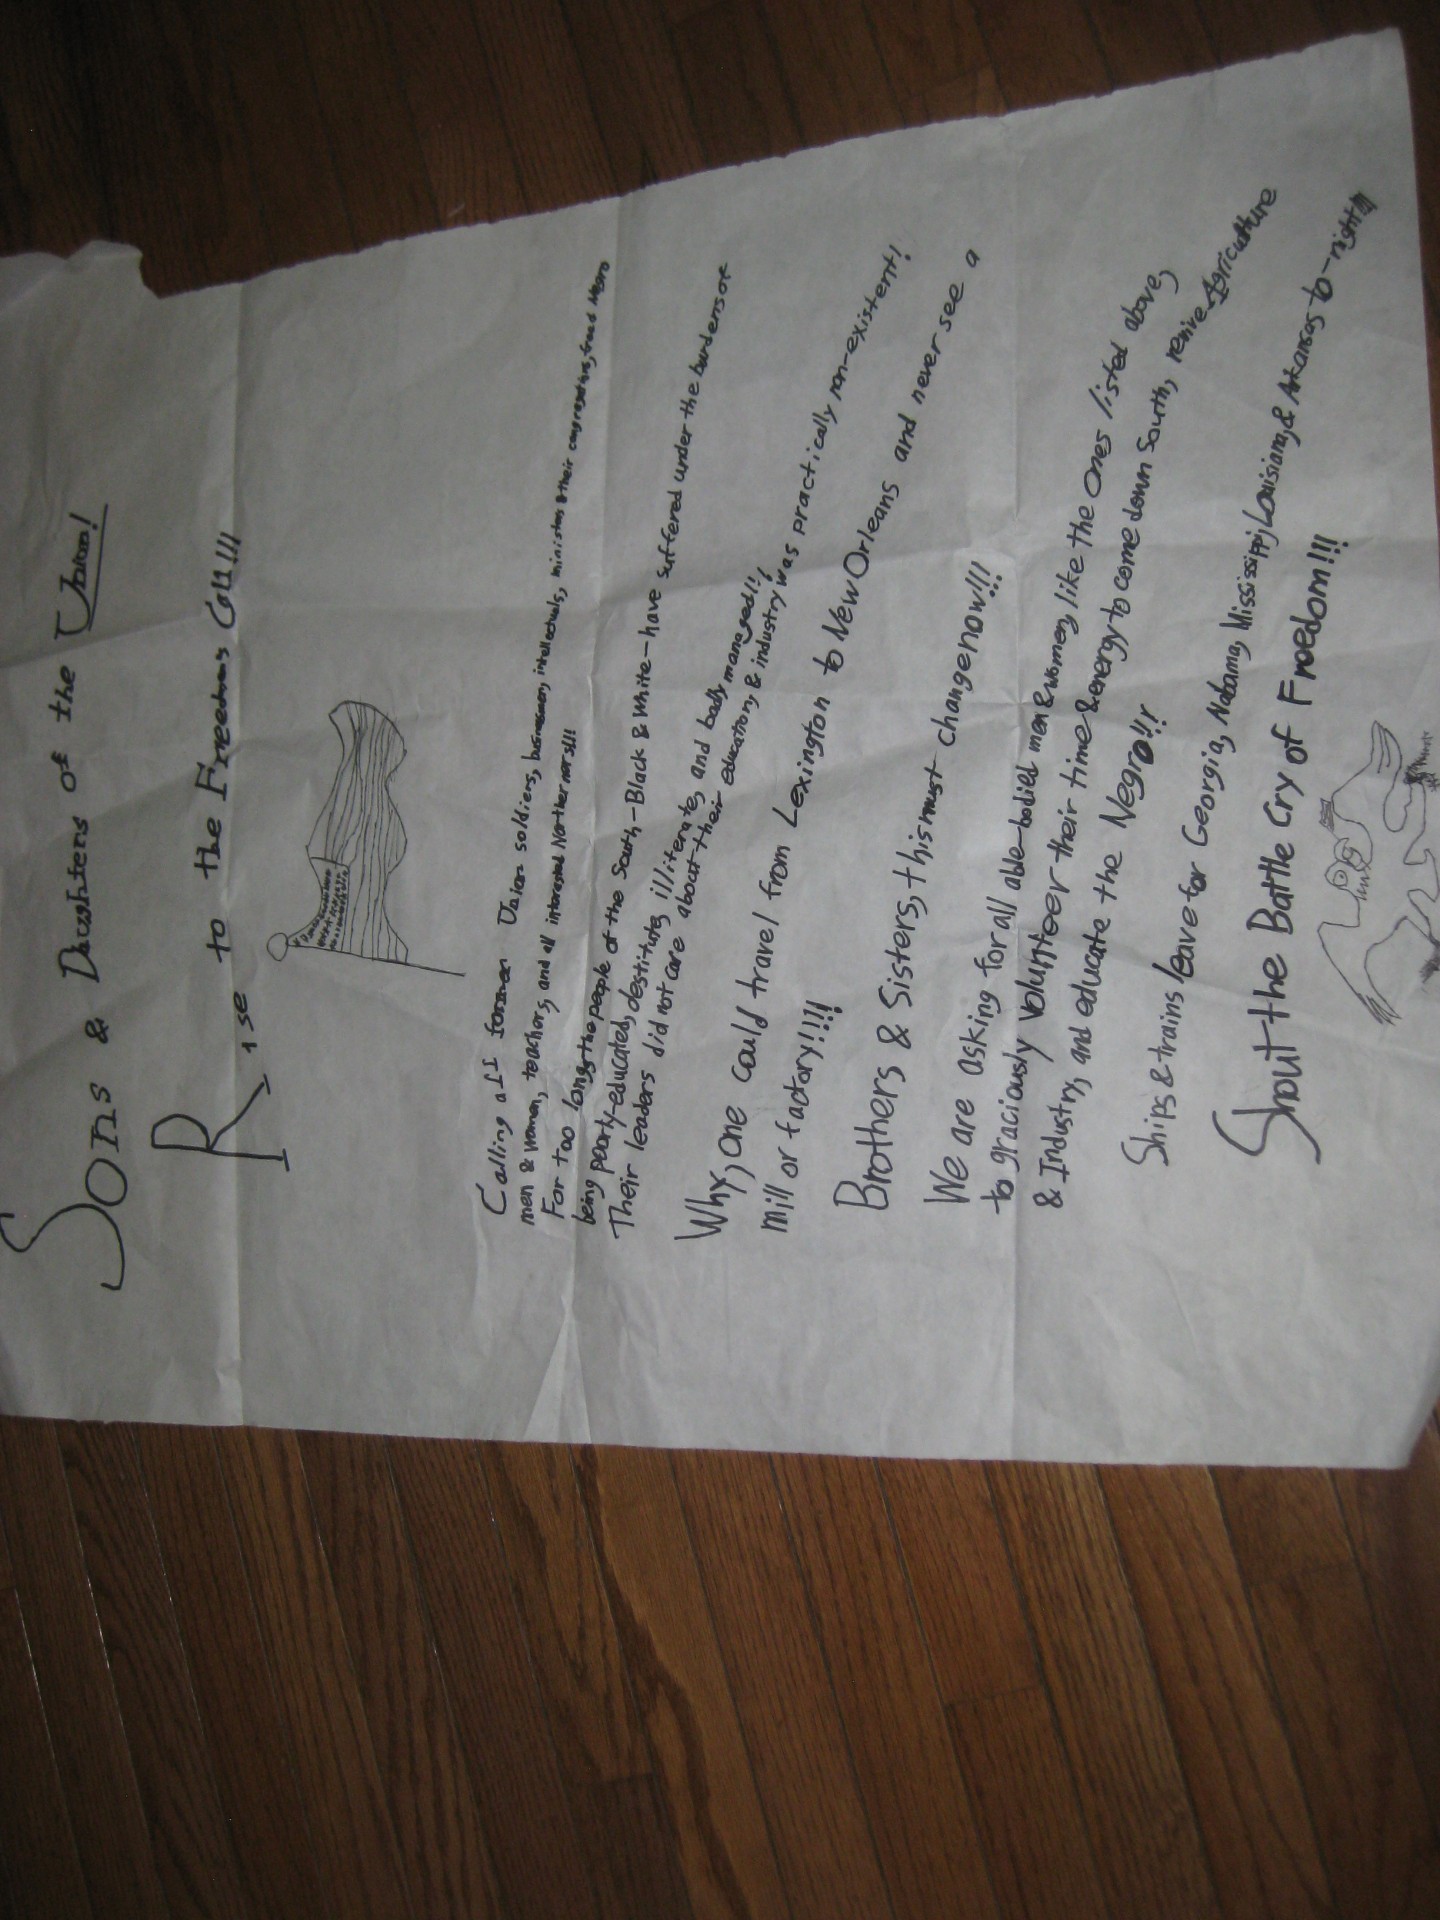 Sons & Daughters of the Union!
Rise to the Freedoms Call!!!
Calling all former Union soldiers, businessmen, intellectuals, ministers & their congregations, freed Negro
men & women, teachers, and all interested Northerners!!!
For too long, the people of the South - Black & White - have suffered under the burdens of
being poorly-educated, destitute, illiterate, and badly managed!!!
Their leaders did not care about their education, & industry was practically non-existent!
Why, one could travel from Lexington to New Orleans and never see a
mill or factory!!!!
Brothers & Sisters, this must change now!!!
We are asking for all able-bodied men & women, like the ones listed above,
to graciously volunteer their time & energy to come down South, revive Agriculture
& Industry, and educate the Negro!!!
Ships & trains leave for Georgia, Alabama, Mississippi, Louisiana, & Arkansas to-night!!!
Shout the Battle Cry of Freedom!!!